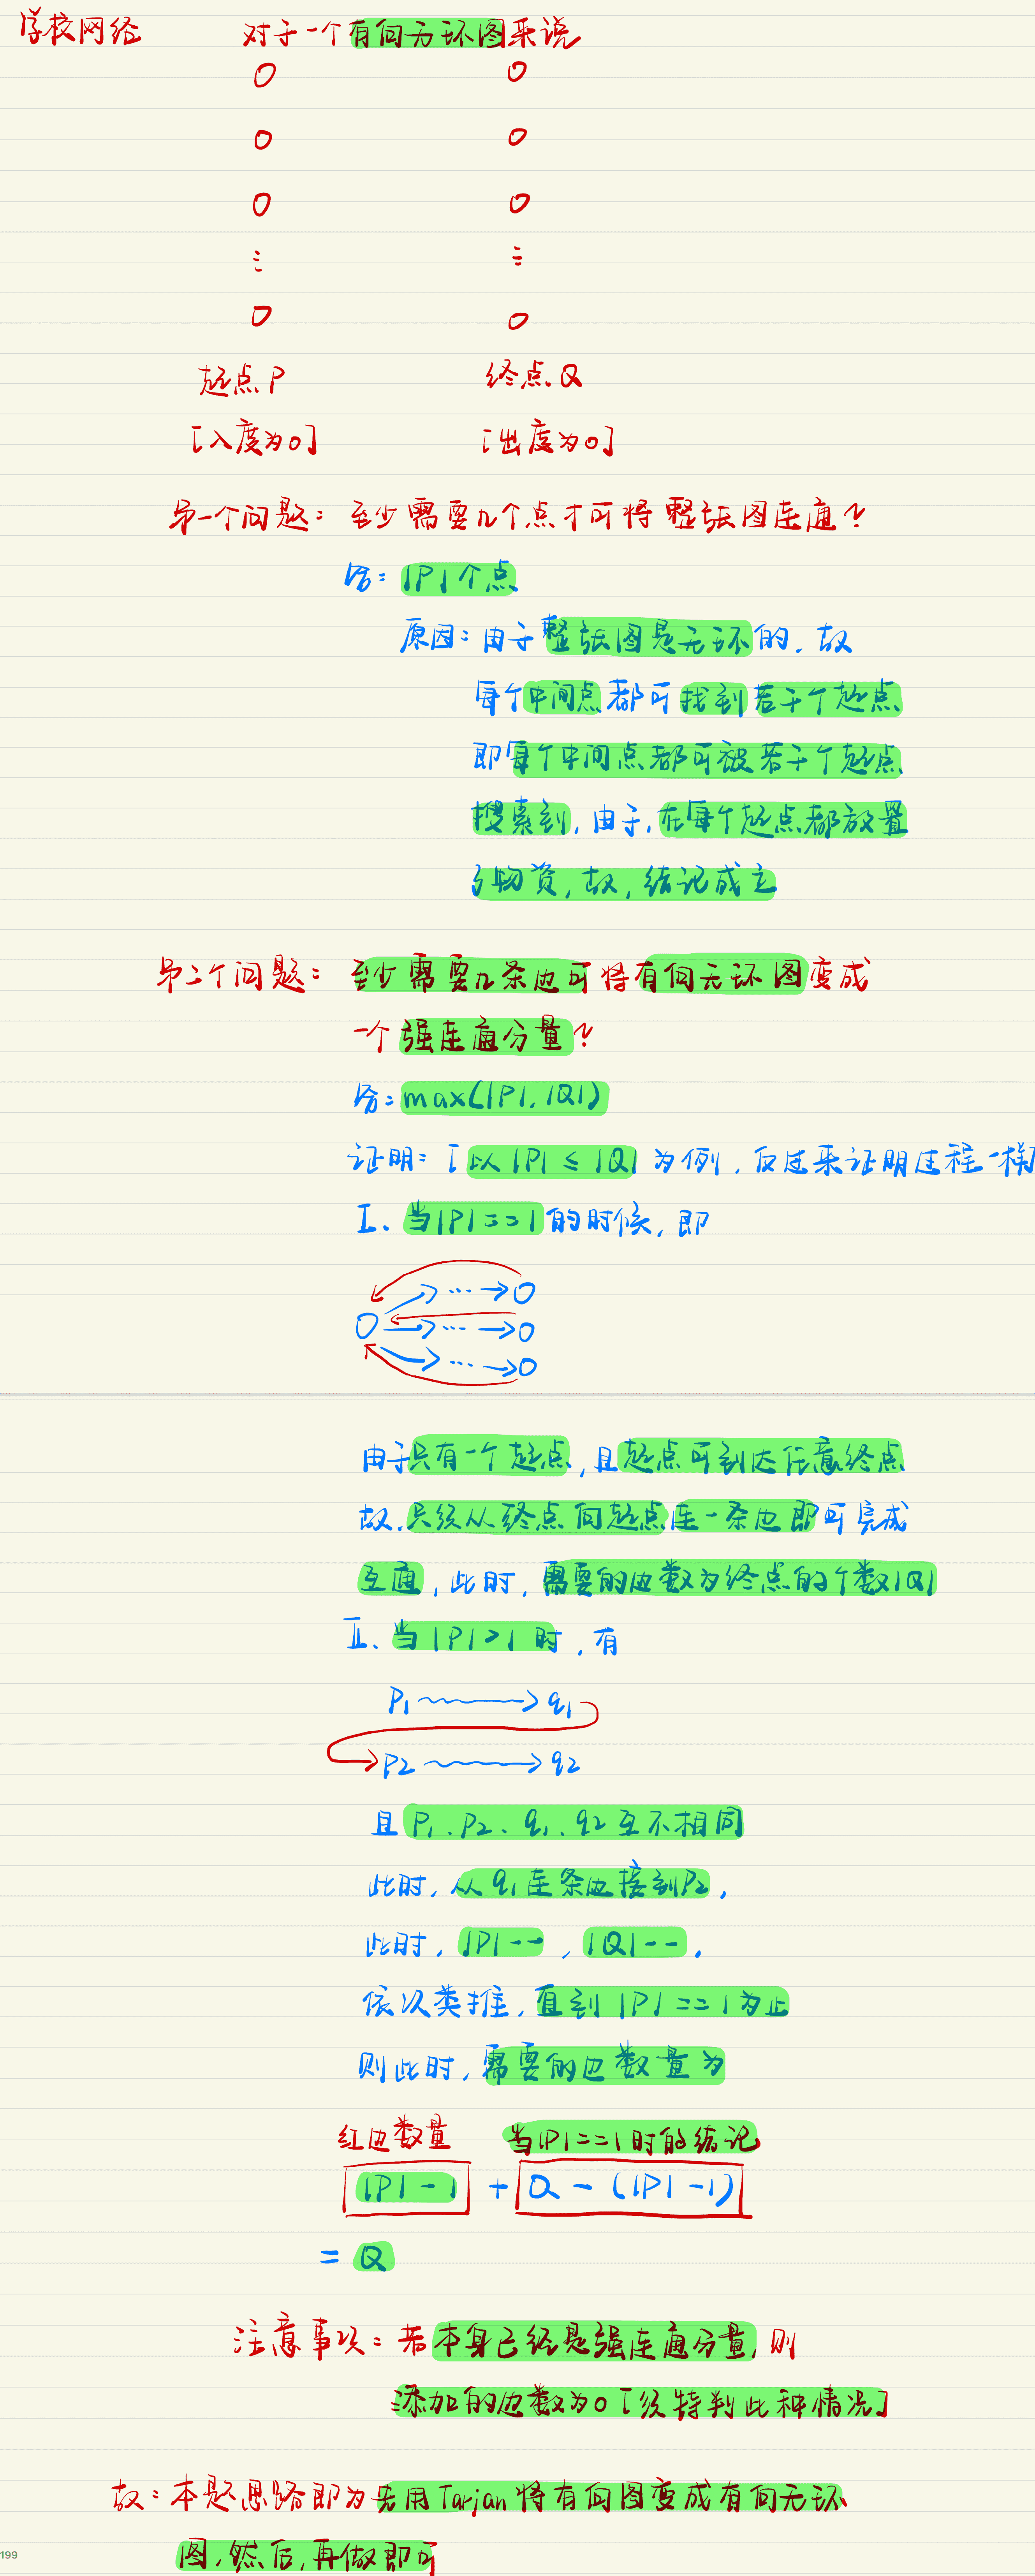 学校网络 对于一个有向无环图来说
起点P 终点Q
[入度为0] [出度为0]
第一个问题：至少需要几个点才可将整张图连通？
答：|P|个点
原因：由于整张图是无环的，故
每个中间点都可找到若干个起点
即每个中间点都可被若干个起点
搜索到，由于，在每个起点都放置
了物资，故，结论成立
第二个问题：至少需要几条边可将有向无环图变成
一个强连通分量？
答：max(|P|, |Q|)
证明：[以|P| ≤ |Q|为例，反过来证明过程一样
I、当|P|==1的时候，即
由于只有一个起点，且起点可到达任意终点
故，只须从终点向起点连一条边即可完成
互通，此时，需要的边数为终点的个数|Q|
II、当|P|>1时，有
P1 → q1
P2 → q2
且P1、P2、q1、q2互不相同
此时，从q1连条边接到P2，
此时，|P|--，|Q|--，
依次类推，直到|P|==1为止
则此时，需要的边数量为
红边数量 当|P|==1时的结论
|P|-1 + Q-(|P|-1)
= Q
注意事项：若本身已经是强连通分量，则
添加的边数为0[须特判此种情况]
故：本题思路即为先用Tarjan将有向图变成有向无环
图，然后，再做即可
199